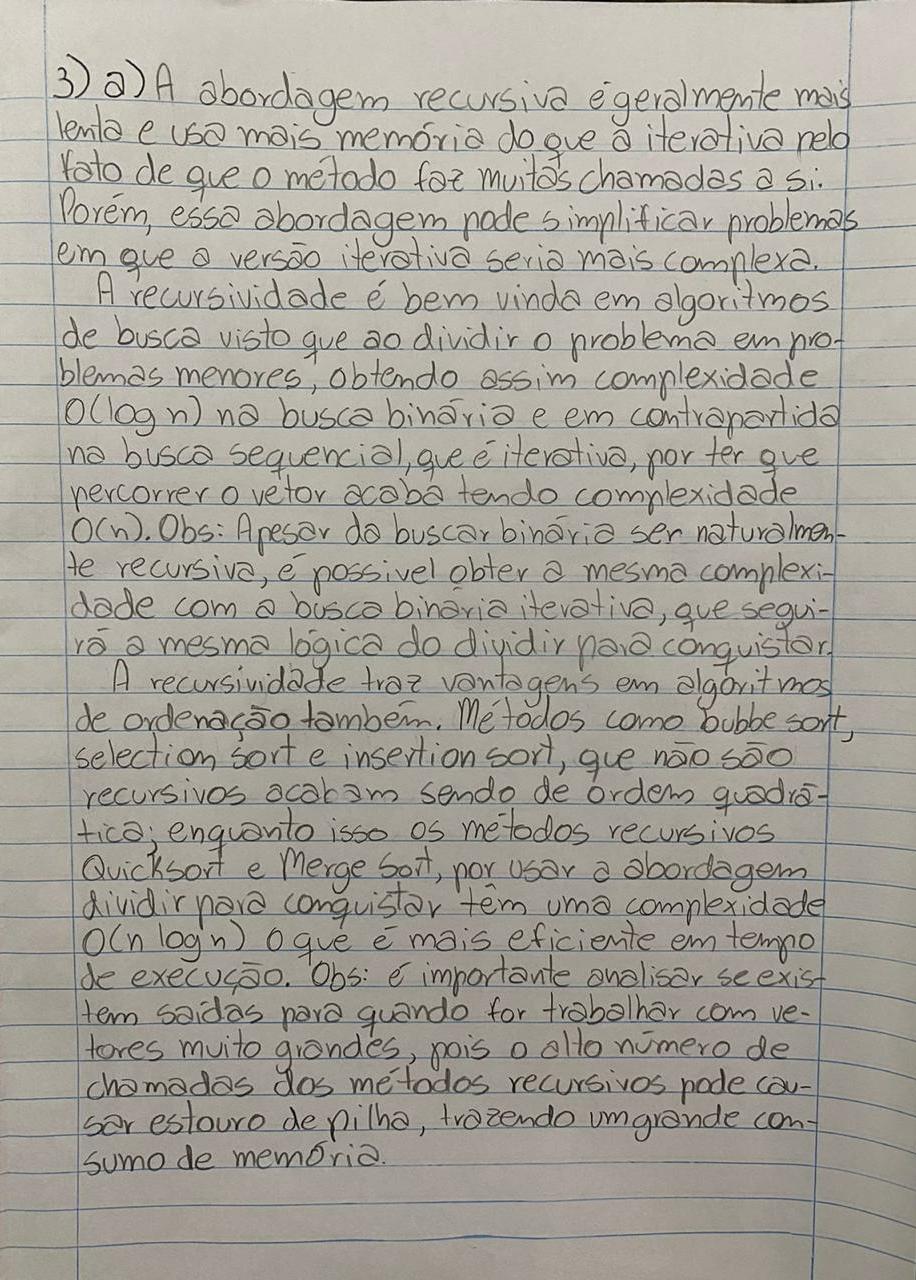 3) a) A abordagem recursiva é geralmente mais
lenta e usa mais memória do que a iterativa pelo
fato de que o método faz muitas chamadas a si.
Porém, essa abordagem pode simplificar problemas
em que a versão iterativa seria mais complexa.
A recursividade é bem vinda em algoritmos
de busca visto que ao dividir o problema em pro-
blemas menores, obtendo assim complexidade
O(log n) na busca binária e em contrapartida
na busca sequencial, que é iterativa, por ter que
percorrer o vetor acaba tendo complexidade
O(n). Obs: Apesar da buscar binária ser naturalmen-
te recursiva, é possivel obter a mesma complexi-
dade com a busca binária iterativa, que segui-
rá a mesma lógica do dividir para conquistar.
A recursividade traz vantagens em algoritmos
de ordenação também. Métodos como bubbe sort,
selection sort e insertion sort, que não são
recursivos acabam sendo de ordem quadrá-
tica; enquanto isso os métodos recursivos
Quicksort e Merge Sort, por usar a abordagem
dividir para conquistar têm uma complexidade
O(n log n) o que é mais eficiente em tempo
de execução. Obs: é importante analisar se exis-
tem saídas para quando for trabalhar com ve-
tores muito grandes, pois o alto número de
chamadas dos métodos recursivos pode cau-
sar estouro de pilha, trazendo um grande con-
sumo de memória.